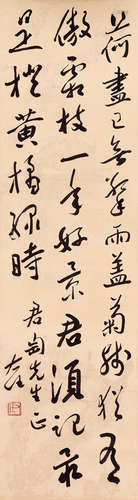 荷盡已無擎雨蓋菊殘猶有
傲霜枝一年好景君須記最
是橙黃橘綠時
君匋先生正